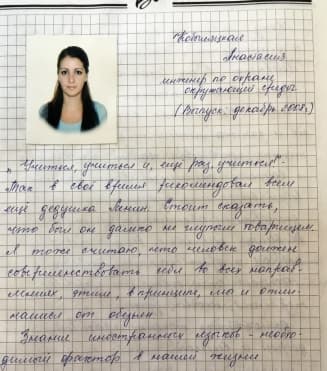 Кобылицкая
Анастасия
инженер по охране
окружающей среды
(Выпуск: декабрь 2008г.)
„Учиться, учиться и, ещё раз, учиться“-
Так в своё время рекомендовал всем
ещё дедушка Ленин. Стоит сказать,
что был он далеко не глупым товарищем.
Я тоже считаю, что человек должен
совершенствовать себя во всех направ-
лениях, этим, в принципе, мы и отли-
чаемся от обезьян.
Знание иностранных языков - необхо-
димый фактор в нашей жизни